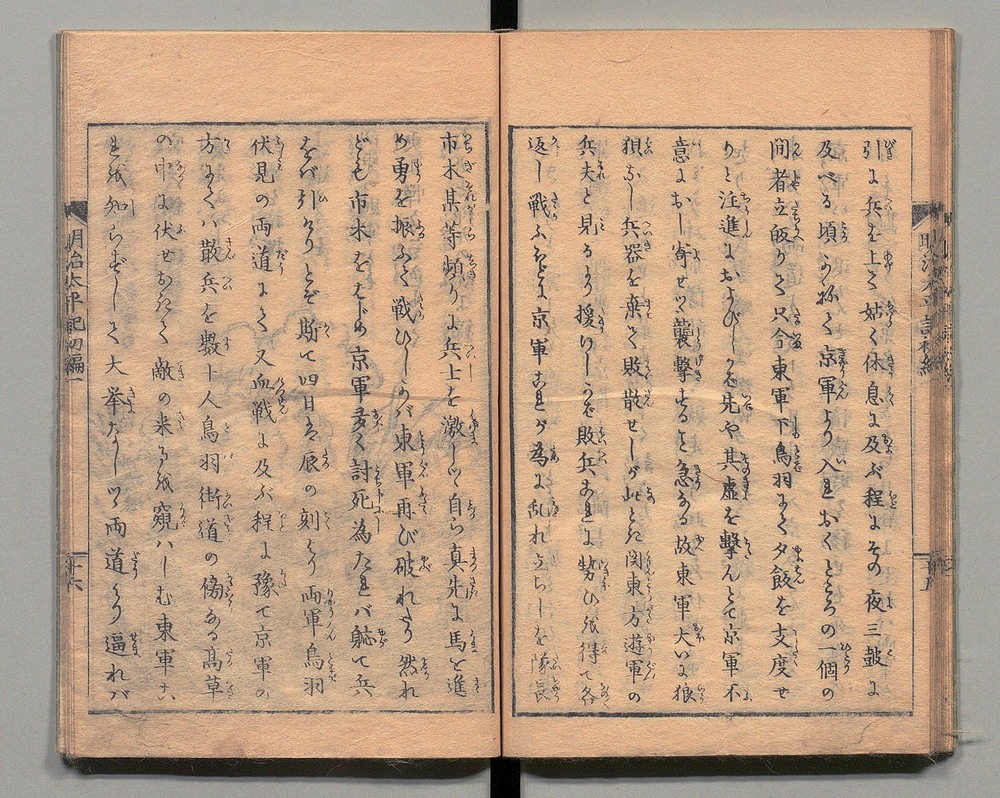 引に兵を上て姑く休息に及ぶ程にその夜三鼓に
及べる頃かねて京軍より入れおくところの一個の
間者立皈りて只今東軍下鳥羽にて夕飯を支度せ
りと注進におよびしかば先や其虚を撃んとて京軍不
意におし寄せツヽ襲撃すること急なる故東軍大いに狼
狽なし兵器を棄て敗散せしが此ときに関東方遊軍の
兵夫と見るより援けしかば敗兵これに勢ひを得て各
返し戦ふほどに京軍これが為に乱れ立ちしを隊長
市木某等頻りに兵士を激しツヽ自ら真先に馬を進
め勇を振ふて戦ひしかば東軍再び破れたり然れ
ども市木をはじめ京軍多く討死為たれバ軈て兵
をバ引けりとぞ斯て四日は辰の刻より両軍鳥羽
伏見の両道にて又血戦に及ぶ程に豫て京軍の
方にてハ散兵を数十人鳥羽街道の傍なる高草
の中に伏せおきて敵の来るを窺ハしむ東軍ハ
これを知らずして大挙なしツヽ両道より逼れバ
明治太平記初編一
十六